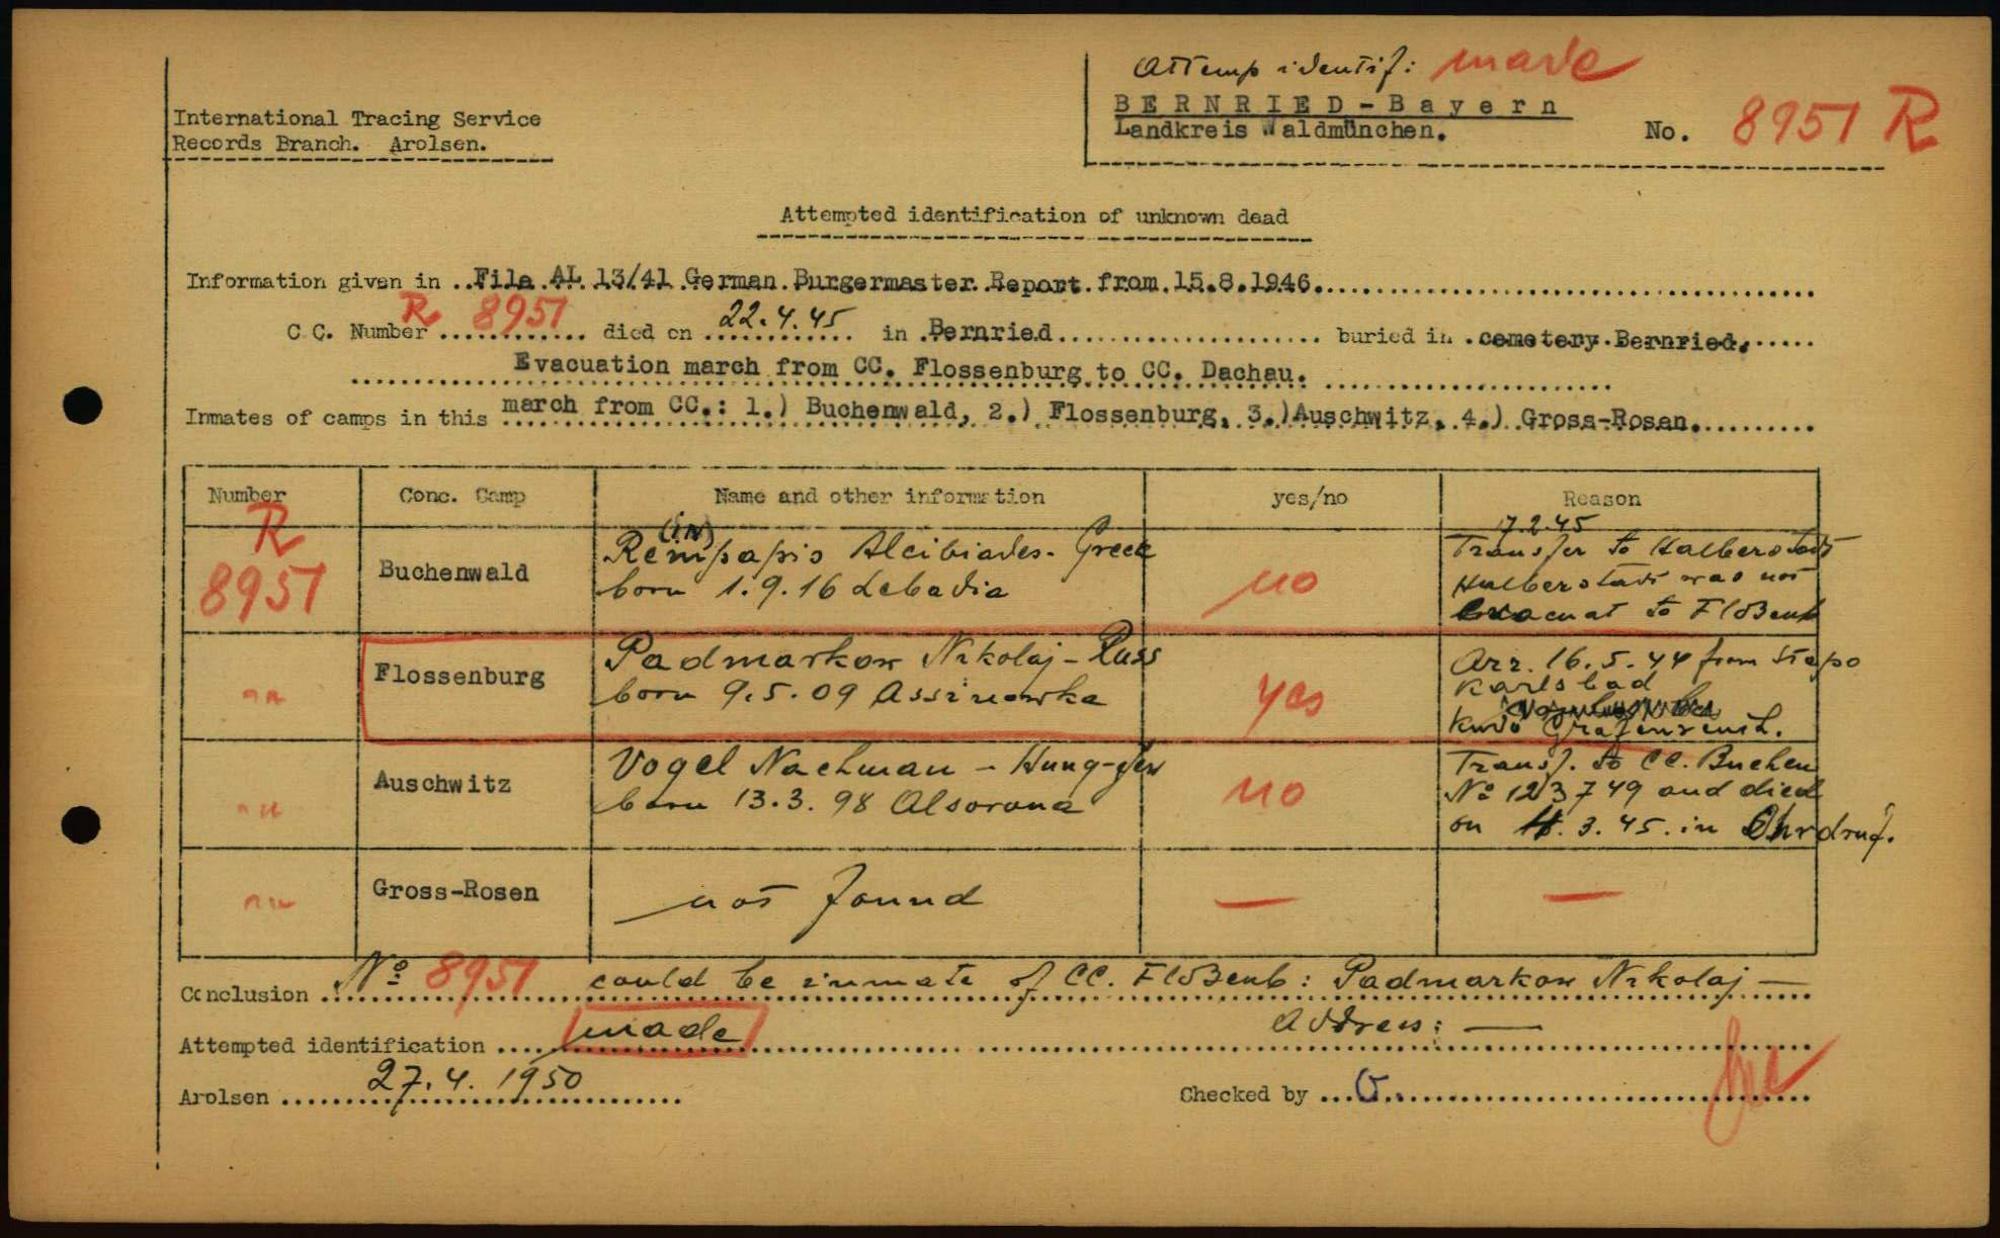 Attemp identif: made
BERNRIED-Bayern
Landkreis Waldmünchen.
No. 8951 R
International Tracing Service
Records Branch. Arolsen.
Attempted identification of unknown dead
Information given in ..File AL 13/41 German Burgermaster Report from 15.8.1946.
C.C. Number R 8951 died on 22.4.45 in Bernried buried in cemetery Bernried.
Evacuation march from CC. Flossenburg to CC. Dachau.
Inmates of camps in this march from CC.: 1.) Buchenwald, 2.) Flossenburg, 3.)Auschwitz, 4.) Gross-Rosen.
Number Conc. Camp Name and other information yes/no Reason
R 8951 Buchenwald
(in)
Rempapis Alcibiades - Greek
born 1.9.16 Lebadia
no
17.2.45
Transfer to Halberstadt
Halberstadt was not
evacuat to Floßenb
"" Flossenburg
Padmarkow Nikolaj - Russ
born 9.5.09 Assinowka
yes
Arr. 16.5.44 from Stapo
Karlsbad
Kdo Grafenreuth.
"" Auschwitz
Vogel Nachman - Hung-Jew
born 13.3.98 Alsorona
no
Transf. to CC. Buchen
No 123749 and died
on 11.3.45. in Ohrdruf.
"" Gross-Rosen
not found
— —
Conclusion No 8951 could be inmate of CC. Floßenb: Padmarkow Nikolaj —
Address: —
Attempted identification made
Arolsen 27.4.1950
Checked by